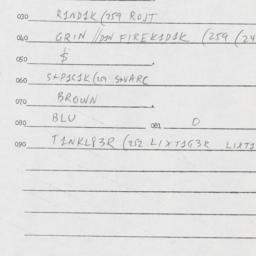 030 R1ND1K (259 ROJT
040 GRIN //D1N FIREK1D1K (259 (24
050 $
060 (259
070 BROWN
080 BLU 081 0
090 T1NKL83R (252 L1XT1G3R L1XT1